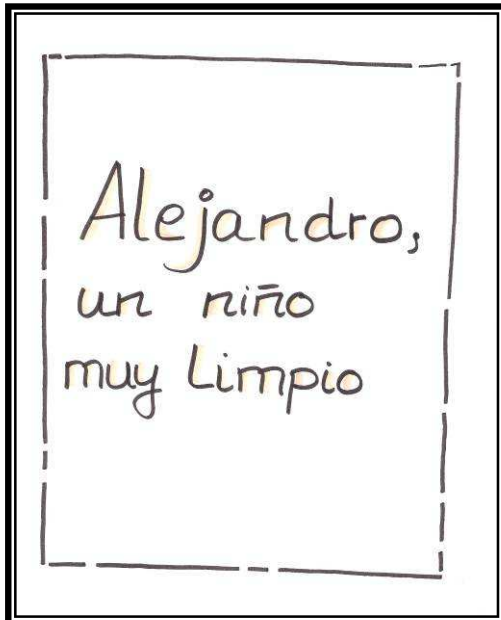 Alejandro,
un niño
muy Limpio